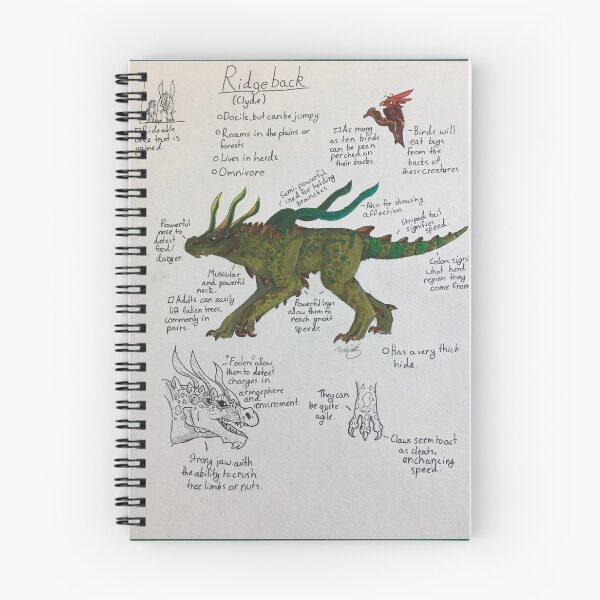 Ridgeback
(Clyde)
Docile, but can be jumpy
Roams in the plains or
forests
Lives in herds
Omnivore
Rideable
once trust is
gained.
As many
as ten birds
can be seen
perched on
their backs.
-Birds will
eat bugs
from the
backs of
these creatures
Semi-powerful
used for holding
branches
-Also for showing
affection
striped tail
signifies
speed.
Powerful
nose to
detect
food/
danger.
Colors signi
what herd
region they
come from
Muscular
and powerful
neck.
Adults can easily
lift fallen trees,
commonly in
pairs.
Powerful legs
allow them to
reach great
speeds.
Has a very thick
hide.
"Feelers" allow
them to detect
changes in
atmosphere
and
enviroment
They can
be quite
agile.
Claws seem to act
as cleats,
enchancing
speed.
Strong jaw with
the ability to crush
tree limbs or nuts.